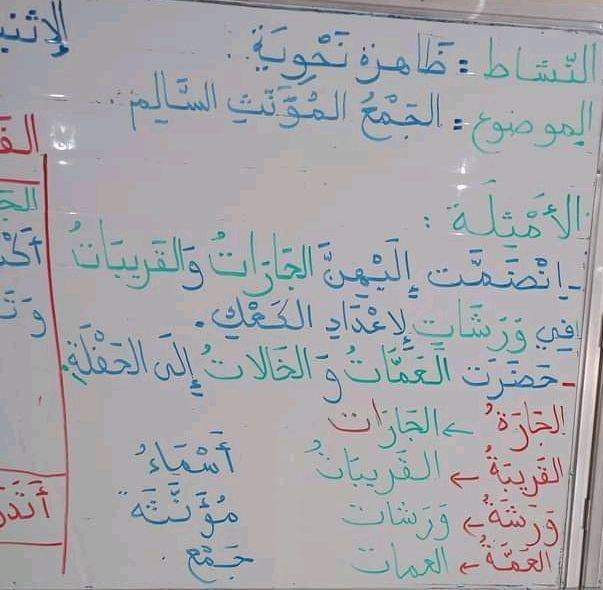 النّشاط : ظَاهرة نَحْوِيَة.
الموضوع : الجَمْعُ المُؤَنَّثِ السَّالِم.
الأَمْثِلَة :
- اِنْضَمَّت إِلَيْهِنَّ الجَارَاتُ وَالقَرِيبَاتُ
فِي وَرَشَاتٍ لِإعْدَادِ الكَعْكِ.
- حَضَرَت العَمَّاتُ وَ الخَالاتُ إِلَى الحَفْلَةِ.
الجَارَةُ ← الجَارَات
القَرِيبَةُ ← القَرِيبَاتُ أَسْمَاءُ
وَرَشَةُ ← وَرَشَات مُؤَنَّثَة
العَمَّةُ ← العمات جَمْع